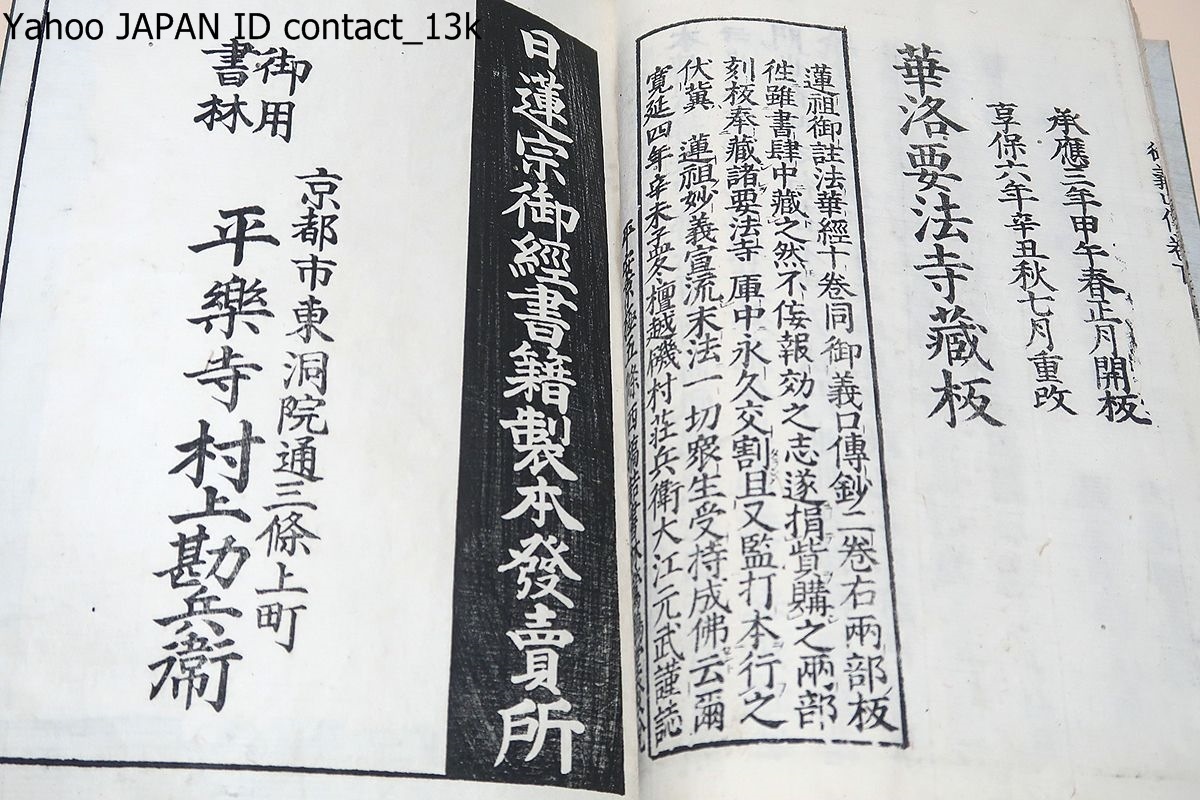 Yahoo JAPAN ID contact_13k
承應三年甲午春正月開板
享保六年辛丑秋七月重改
華洛要法寺藏板
蓮祖御註法華經十卷同御義口傳鈔二卷右兩部板
徃雖書肆中藏之然不侫報効之志遂捐貲購之兩部
刻板奉藏諸要法寺庫中永久交割且又監打本行之
伏冀 蓮祖妙義宣流末法一切衆生受持成佛云爾
寛延四年辛未孟夏檀越磯村莊兵衛大江元武謹誌
日蓮宗御經書籍製本發賣所
京都市東洞院通三條上町
御用
書林
平樂寺村上勘兵衞